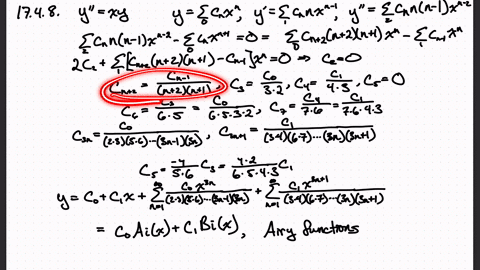 17.4.8. y'' = xy y = Σ₀ cₙxⁿ, y' = Σ₁ cₙn xⁿ⁻¹, y'' = Σ₂ cₙn(n-1)xⁿ⁻²
Σ₂ cₙn(n-1)xⁿ⁻² - Σ₀ cₙxⁿ⁺¹ = 0 = Σ₀ cₙ₊₂(n+2)(n+1)xⁿ - Σ₁ cₙ₋₁xⁿ
2c₂ + Σ₁[cₙ₊₂(n+2)(n+1) - cₙ₋₁]xⁿ = 0 ⇒ c₂ = 0
cₙ₊₂ = cₙ₋₁/((n+2)(n+1)), c₃ = c₀/(3·2), c₄ = c₁/(4·3), c₅ = 0
c₆ = c₃/(6·5) = c₀/(6·5·3·2), c₇ = c₄/(7·6) = c₁/(7·6·4·3)
c₃ₙ = c₀/((2·3)(5·6)···(3n-1)(3n)), c₃ₙ₊₁ = c₁/((3·4)(6·7)···(3n)(3n+1))
c₅ = -4/(5·6) c₃ = 4·2/(6·5·4·3) c₁
y = c₀ + c₁x + Σₙ₌₁^∞ c₀x³ⁿ/((2·3)(5·6)···(3n-1)(3n)) + Σₙ₌₁^∞ c₁x³ⁿ⁺¹/((3·4)(6·7)···(3n)(3n+1))
= c₀Ai(x) + c₁Bi(x), Airy functions